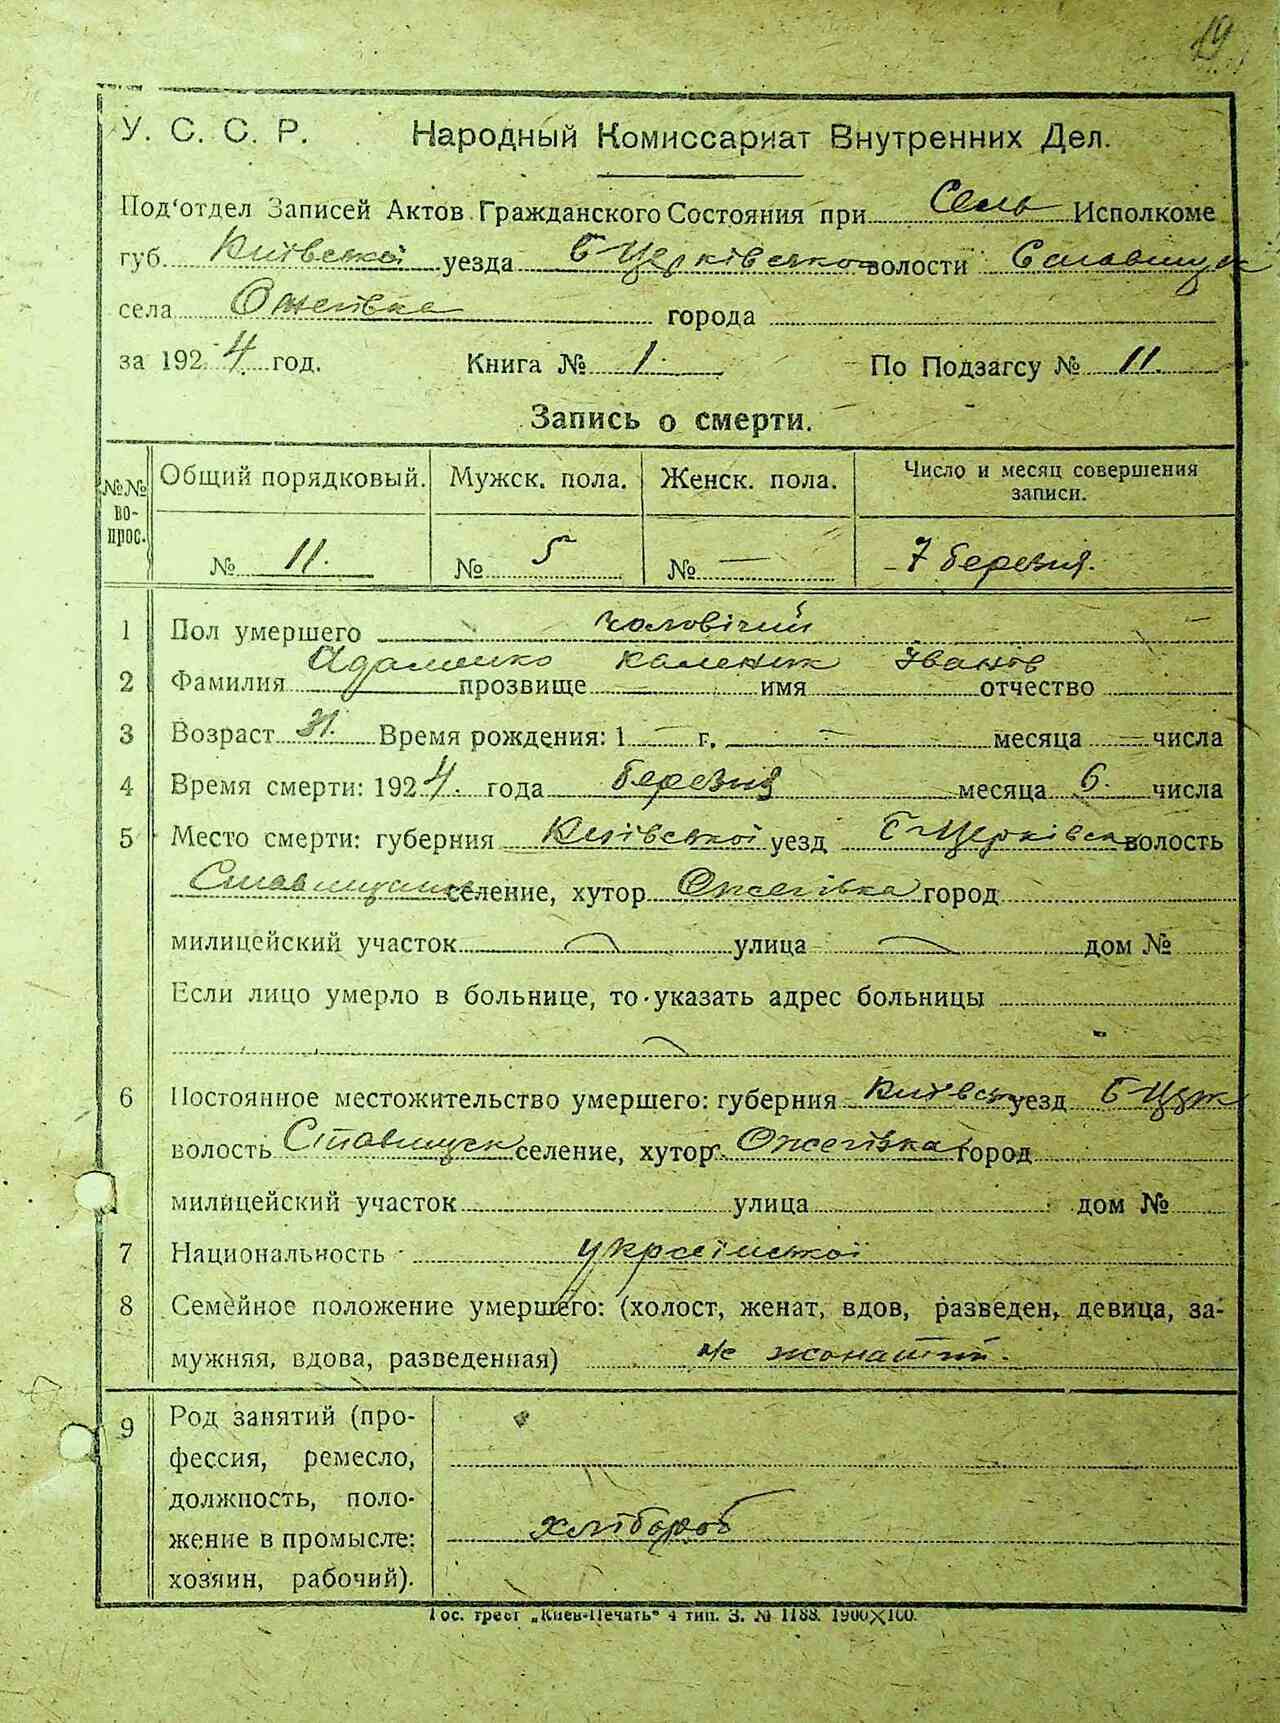 19
У. С. С. Р. Народный Комиссариат Внутренних Дел.
Под'отдел Записей Актов Гражданского Состояния при Сель Исполкоме
губ. Київської уезда Б-Церківсько волости Ставищск
села Ожегівка города
за 1924 год. Книга № 1. По Подзагсу № 11.
Запись о смерти.
№№ во-прос. Общий порядковый. Мужск. пола. Женск. пола. Число и месяц совершения записи.
№ 11. № 5 № — 7 березня.
1 Пол умершего чоловічий
Адаменко Каленик Іванов
2 Фамилия прозвище имя отчество
3 Возраст 31. Время рождения: 1 — г. — месяца — числа
4 Время смерти: 1924. года березня месяца 6. числа
5 Место смерти: губерния Київської уезд Б-Церківск волость
Ставищанск селение, хутор Ожегівка город
милицейский участок улица дом №
Если лицо умерло в больнице, то указать адрес больницы
6 Постоянное местожительство умершего: губерния Київськ уезд Б-Церк
волость Ставищск селение, хутор Ожегівка город
милицейский участок улица дом №
7 Национальность української
8 Семейное положение умершего: (холост, женат, вдов, разведен, девица, за-
мужняя, вдова, разведенная) не жонатий.
9 Род занятий (про-
фессия, ремесло,
должность, поло-
жение в промысле: хлібороб
хозяин, рабочий).
Гос. трест „Киев-Печать" 4 тип. З. № 1188. 1900×100.